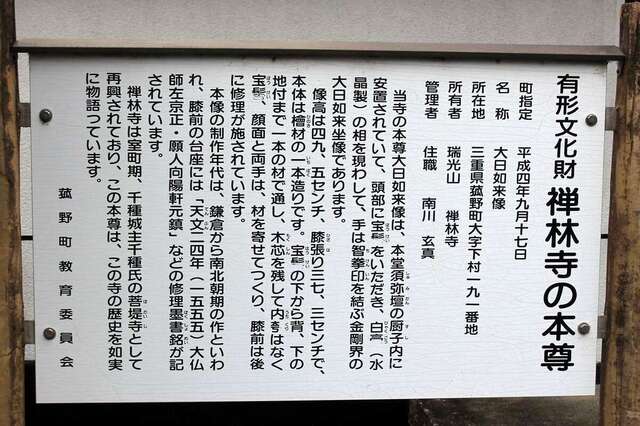 有形文化財 禅林寺の本尊
町指定 平成四年九月十七日
名称 大日如来像
所在地 三重県菰野町大字下村一九一番地
所有者 瑞光山 禅林寺
管理者 住職 南川 玄真
当寺の本尊大日如来像は、本堂須弥壇の厨子内に
安置されていて、頭部に宝髻をいただき、白毫（水
晶製）の相を現わして、手は智拳印を結ぶ金剛界の
大日如来坐像であります。
像高は四九、五センチ、膝張り三七、三センチで、
本体は檜材の一本造りです。宝髻の下から背、下の
地付まで一本の材で通し、木芯を残して内刳はなく
宝髻、顔面と両手は、材を寄せてつくり、膝前は後
に修理が施されています。
本像の制作年代は、鎌倉から南北朝期の作といわ
れ、膝前の台座には「天文二四年（一五五五）大仏
師左京正・願人向陽軒元鎮」などの修理墨書銘が記
されています。
禅林寺は室町期、千種城主千種氏の菩提寺として
再興されており、この本尊は、この寺の歴史を如実
に物語っています。
菰野町教育委員会